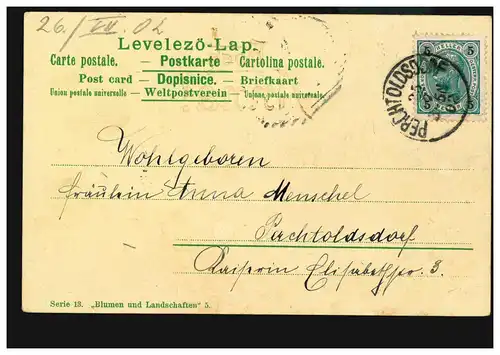 26./VII. 02
Levelezö-Lap.
Carte postale. — Postkarte — Cartolina postale.
Post card — Dopisnice. — Briefkaart
Union postale universelle — Weltpostverein — Unione postale universale.
5 HELLER 5
PERCHTOLDSDORF
Wohlgeboren
Fräulein Anna Menschel
Perchtoldsdorf
Kaiserin Elisabethstr. 3.
Serie 13. „Blumen und Landschaften" 5.